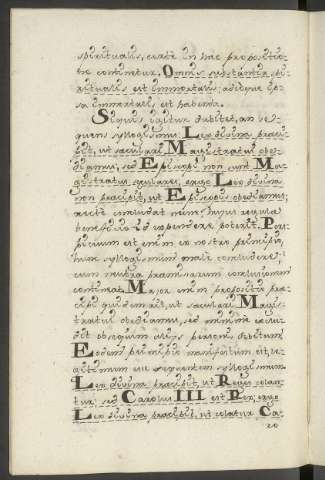 spiritualis, certè in hac propositio-
ne continetur. Omnis substantia spi-
ritualis est immortalis: adeoque ip-
sa immortalis est habenda.
Siquis igitur dubitet, an se-
quens syllogismus: Lex divina præci-
pit, ut sæculari Magistratui obe-
diamus; sed Episcopi non sunt Ma-
gistratus sæculares, ergo Lex divina
non præcipit, ut Episcopis obediamus;
rectè concludat nec ne; hujus regulæ
beneficio id expendere poterit. Pers-
picuum est enim ex nostro principio,
hunc syllogismum malè concludere,
cum neutra præmissarum conclusionem
contineat. Major enim propositio præ-
cipit quidem ait, ut sæculari Magis-
tratui obediamus, sed minimè exclu-
dit obsequium aliis personis debitum.
Eodem principio manifestum est, le-
gitimum esse sequentem syllogismum.
Lex divina præcipit, ut Reges colan-
tur; sed Carolus III est Rex; ergo
Lex divina præcipit, ut colatur Ca-
ro